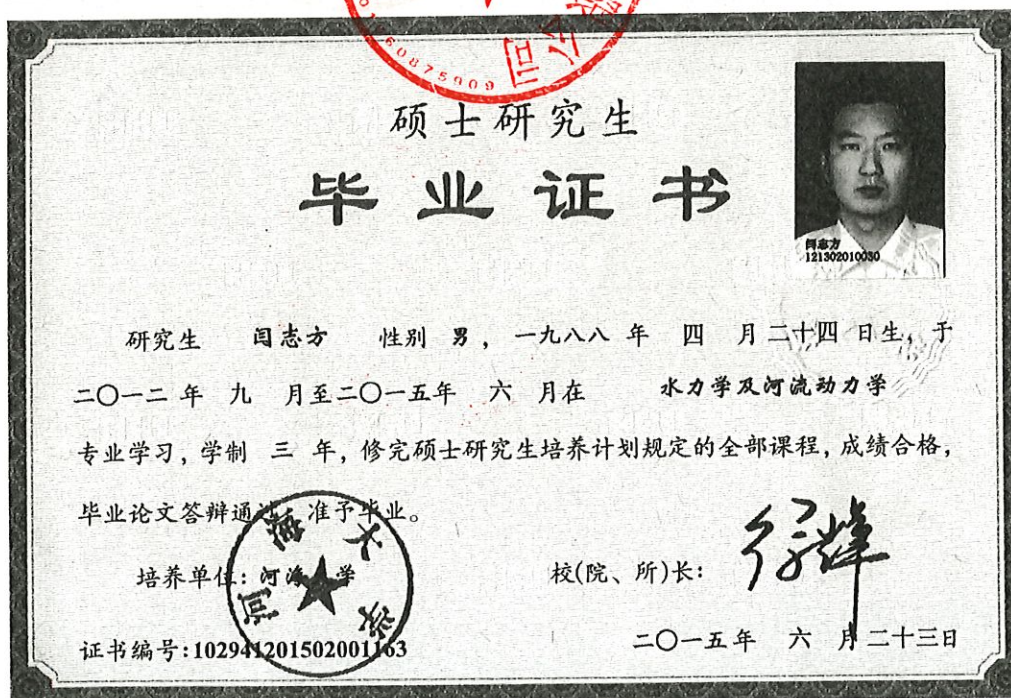 公司
0160875909
硕士研究生
毕业证书
闫志方
121302010030
研究生 闫志方 性别 男，一九八八 年 四 月二十四 日生，于
二〇一二 年 九 月至二〇一五年 六 月在 水力学及河流动力学
专业学习，学制 三 年，修完硕士研究生培养计划规定的全部课程，成绩合格，
毕业论文答辩通过，准予毕业。
河海大学
培养单位：河海大学
校(院、所)长：徐辉
证书编号：102941201502001163
二〇一五年 六 月二十三日